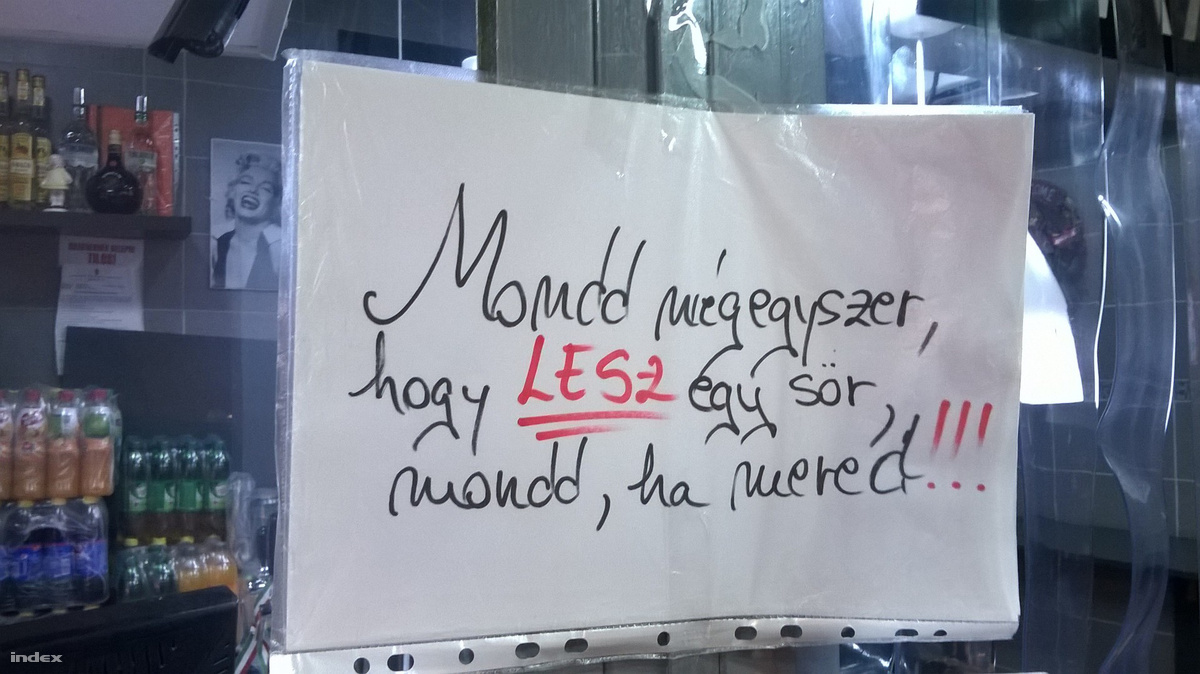 Mondd mégegyszer,
hogy LESZ egy sör,
mondd, ha mered!!!
TILOS!
index